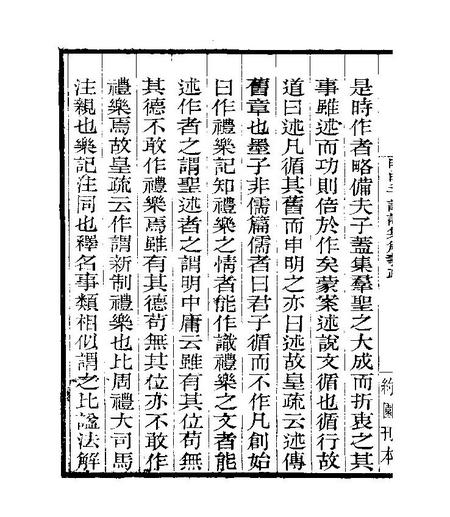 是時作者略備夫子蓋集羣聖之大成而折衷之其
事雖述而功則倍於作矣蒙案述說文循也循行故
道曰述凡循其舊而申明之亦曰述故皇疏云述傳
舊章也墨子非儒篇儒者曰君子循而不作凡創始
曰作禮樂記知禮樂之情者能作識禮樂之文者能
述作者之謂聖述者之謂明中庸云雖有其位苟無
其德不敢作禮樂焉雖有其德苟無其位亦不敢作
禮樂焉故皇疏云作謂新制禮樂也比周禮大司馬
注親也樂記注同也釋名事類相似謂之比諡法解
約園刊本